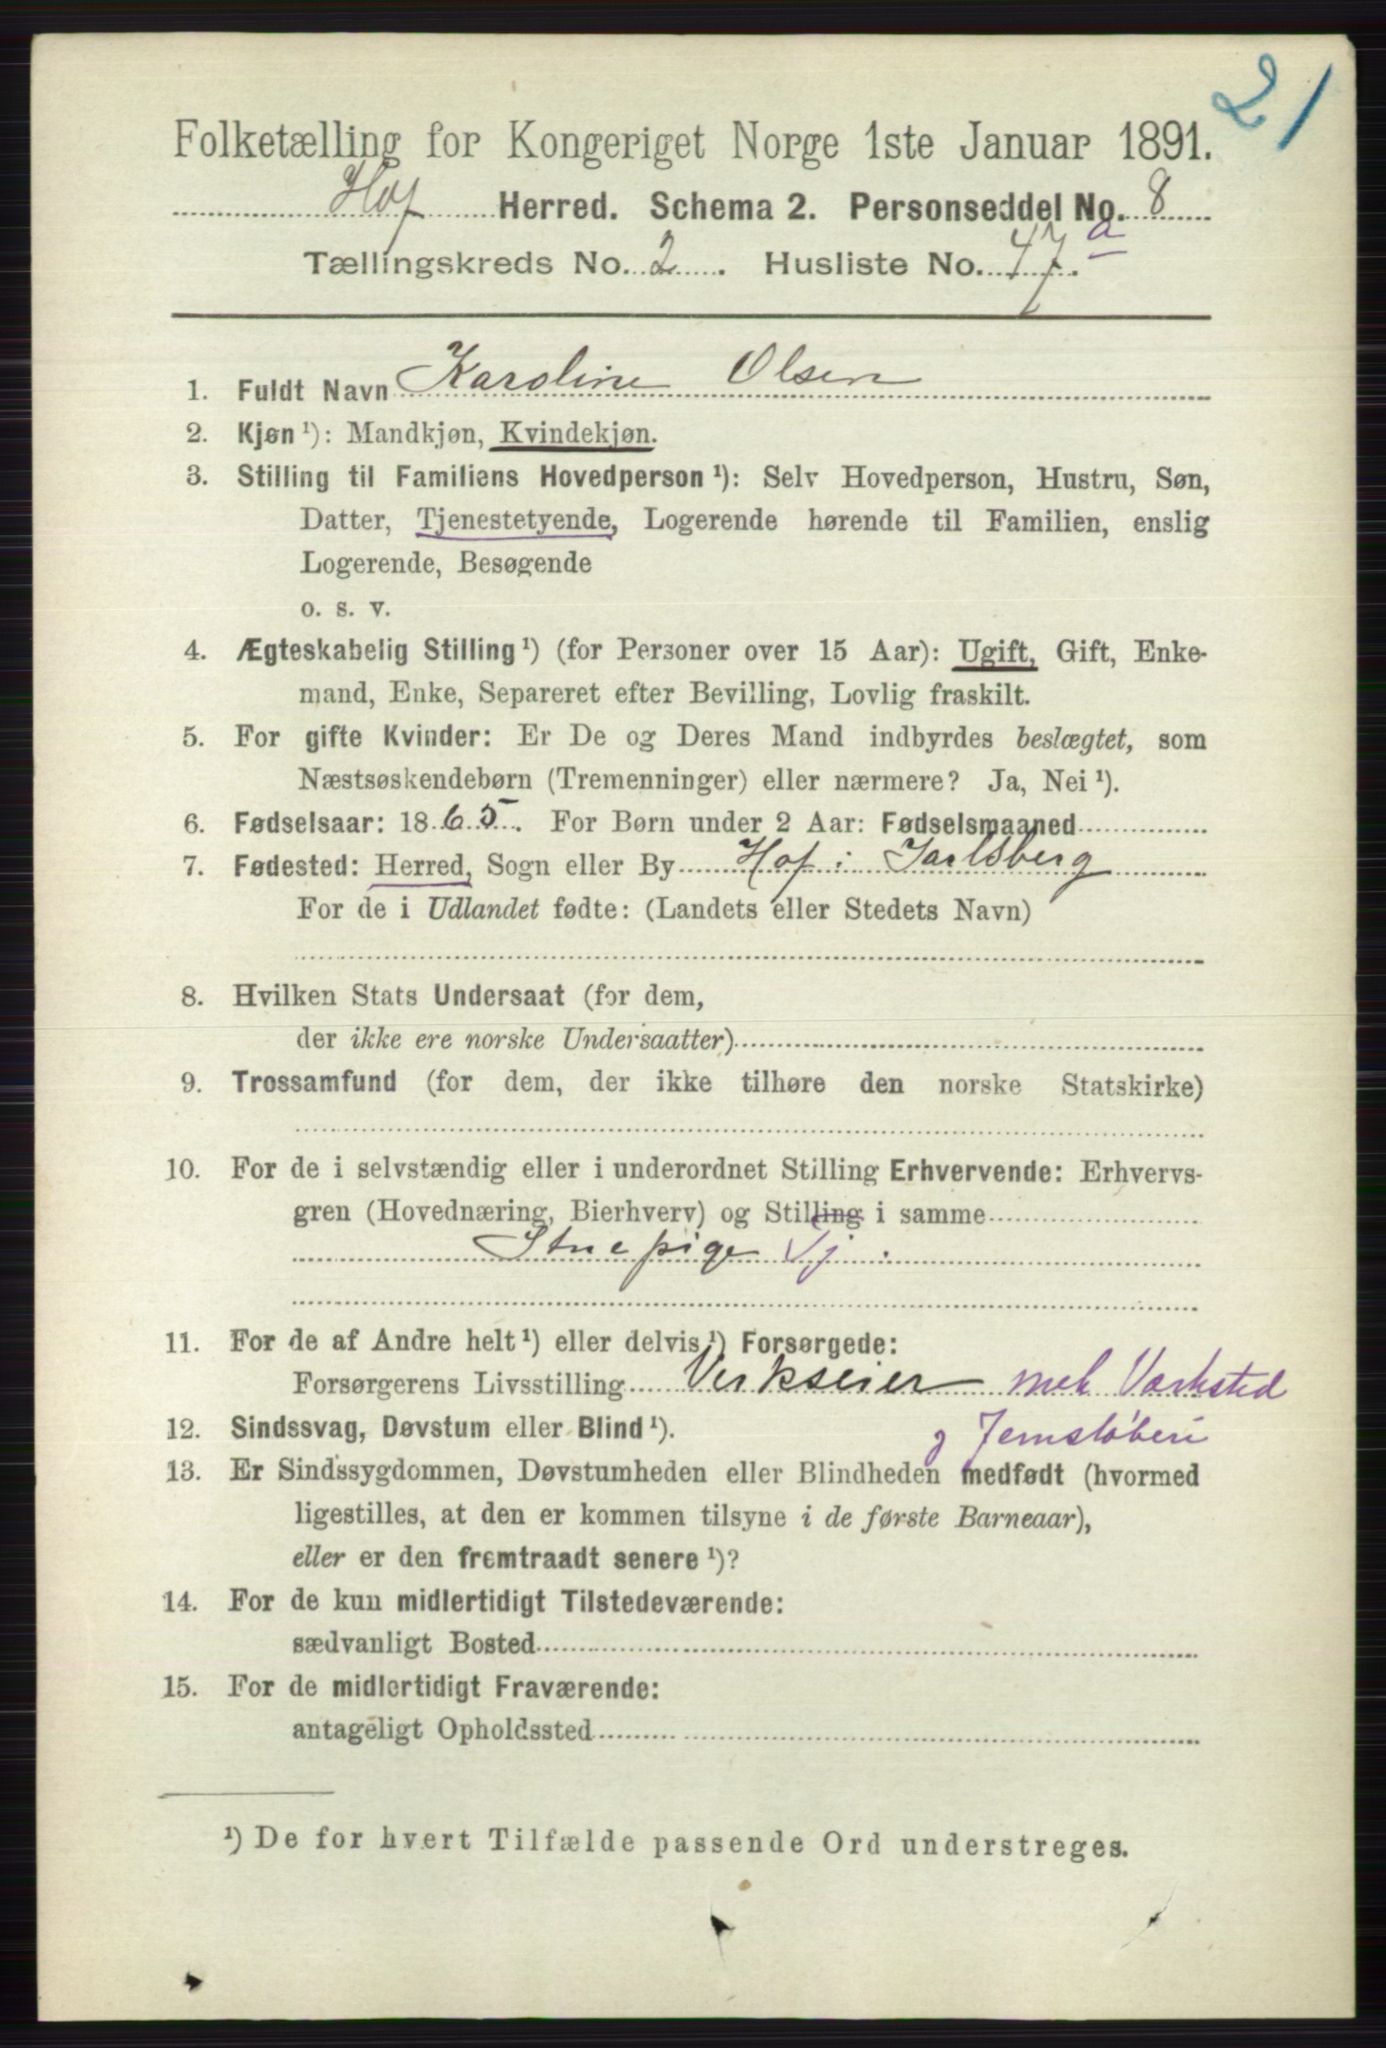 21
Folketælling for Kongeriget Norge 1ste Januar 1891.
Hof Herred. Schema 2. Personseddel No. 8
Tællingskreds No. 2. Husliste No. 47a.
1. Fuldt Navn Karoline Olsen
2. Kjøn ¹): Mandkjøn, Kvindekjøn.
3. Stilling til Familiens Hovedperson ¹): Selv Hovedperson, Hustru, Søn,
Datter, Tjenestetyende, Logerende hørende til Familien, enslig
Logerende, Besøgende
o. s. v.
4. Ægteskabelig Stilling ¹) (for Personer over 15 Aar): Ugift, Gift, Enke-
mand, Enke, Separeret efter Bevilling, Lovlig fraskilt.
5. For gifte Kvinder: Er De og Deres Mand indbyrdes beslægtet, som
Næstsøskendebørn (Tremenninger) eller nærmere? Ja, Nei ¹).
6. Fødselsaar: 1865. For Børn under 2 Aar: Fødselsmaaned
7. Fødested: Herred, Sogn eller By Hof i Jarlsberg
For de i Udlandet fødte: (Landets eller Stedets Navn)
8. Hvilken Stats Undersaat (for dem,
der ikke ere norske Undersaatter)
9. Trossamfund (for dem, der ikke tilhøre den norske Statskirke)
10. For de i selvstændig eller i underordnet Stilling Erhvervende: Erhvervs-
gren (Hovednæring, Bierhverv) og Stilling i samme
Stuepige Tj.
11. For de af Andre helt ¹) eller delvis ¹) Forsørgede:
Forsørgerens Livsstilling Verkseier mek Værksted
12. Sindssvag, Døvstum eller Blind ¹). g Jernstøberi
13. Er Sindssygdommen, Døvstumheden eller Blindheden medfødt (hvormed
ligestilles, at den er kommen tilsyne i de første Barneaar),
eller er den fremtraadt senere ¹)?
14. For de kun midlertidigt Tilstedeværende:
sædvanligt Bosted
15. For de midlertidigt Fraværende:
antageligt Opholdssted
¹) De for hvert Tilfælde passende Ord understreges.